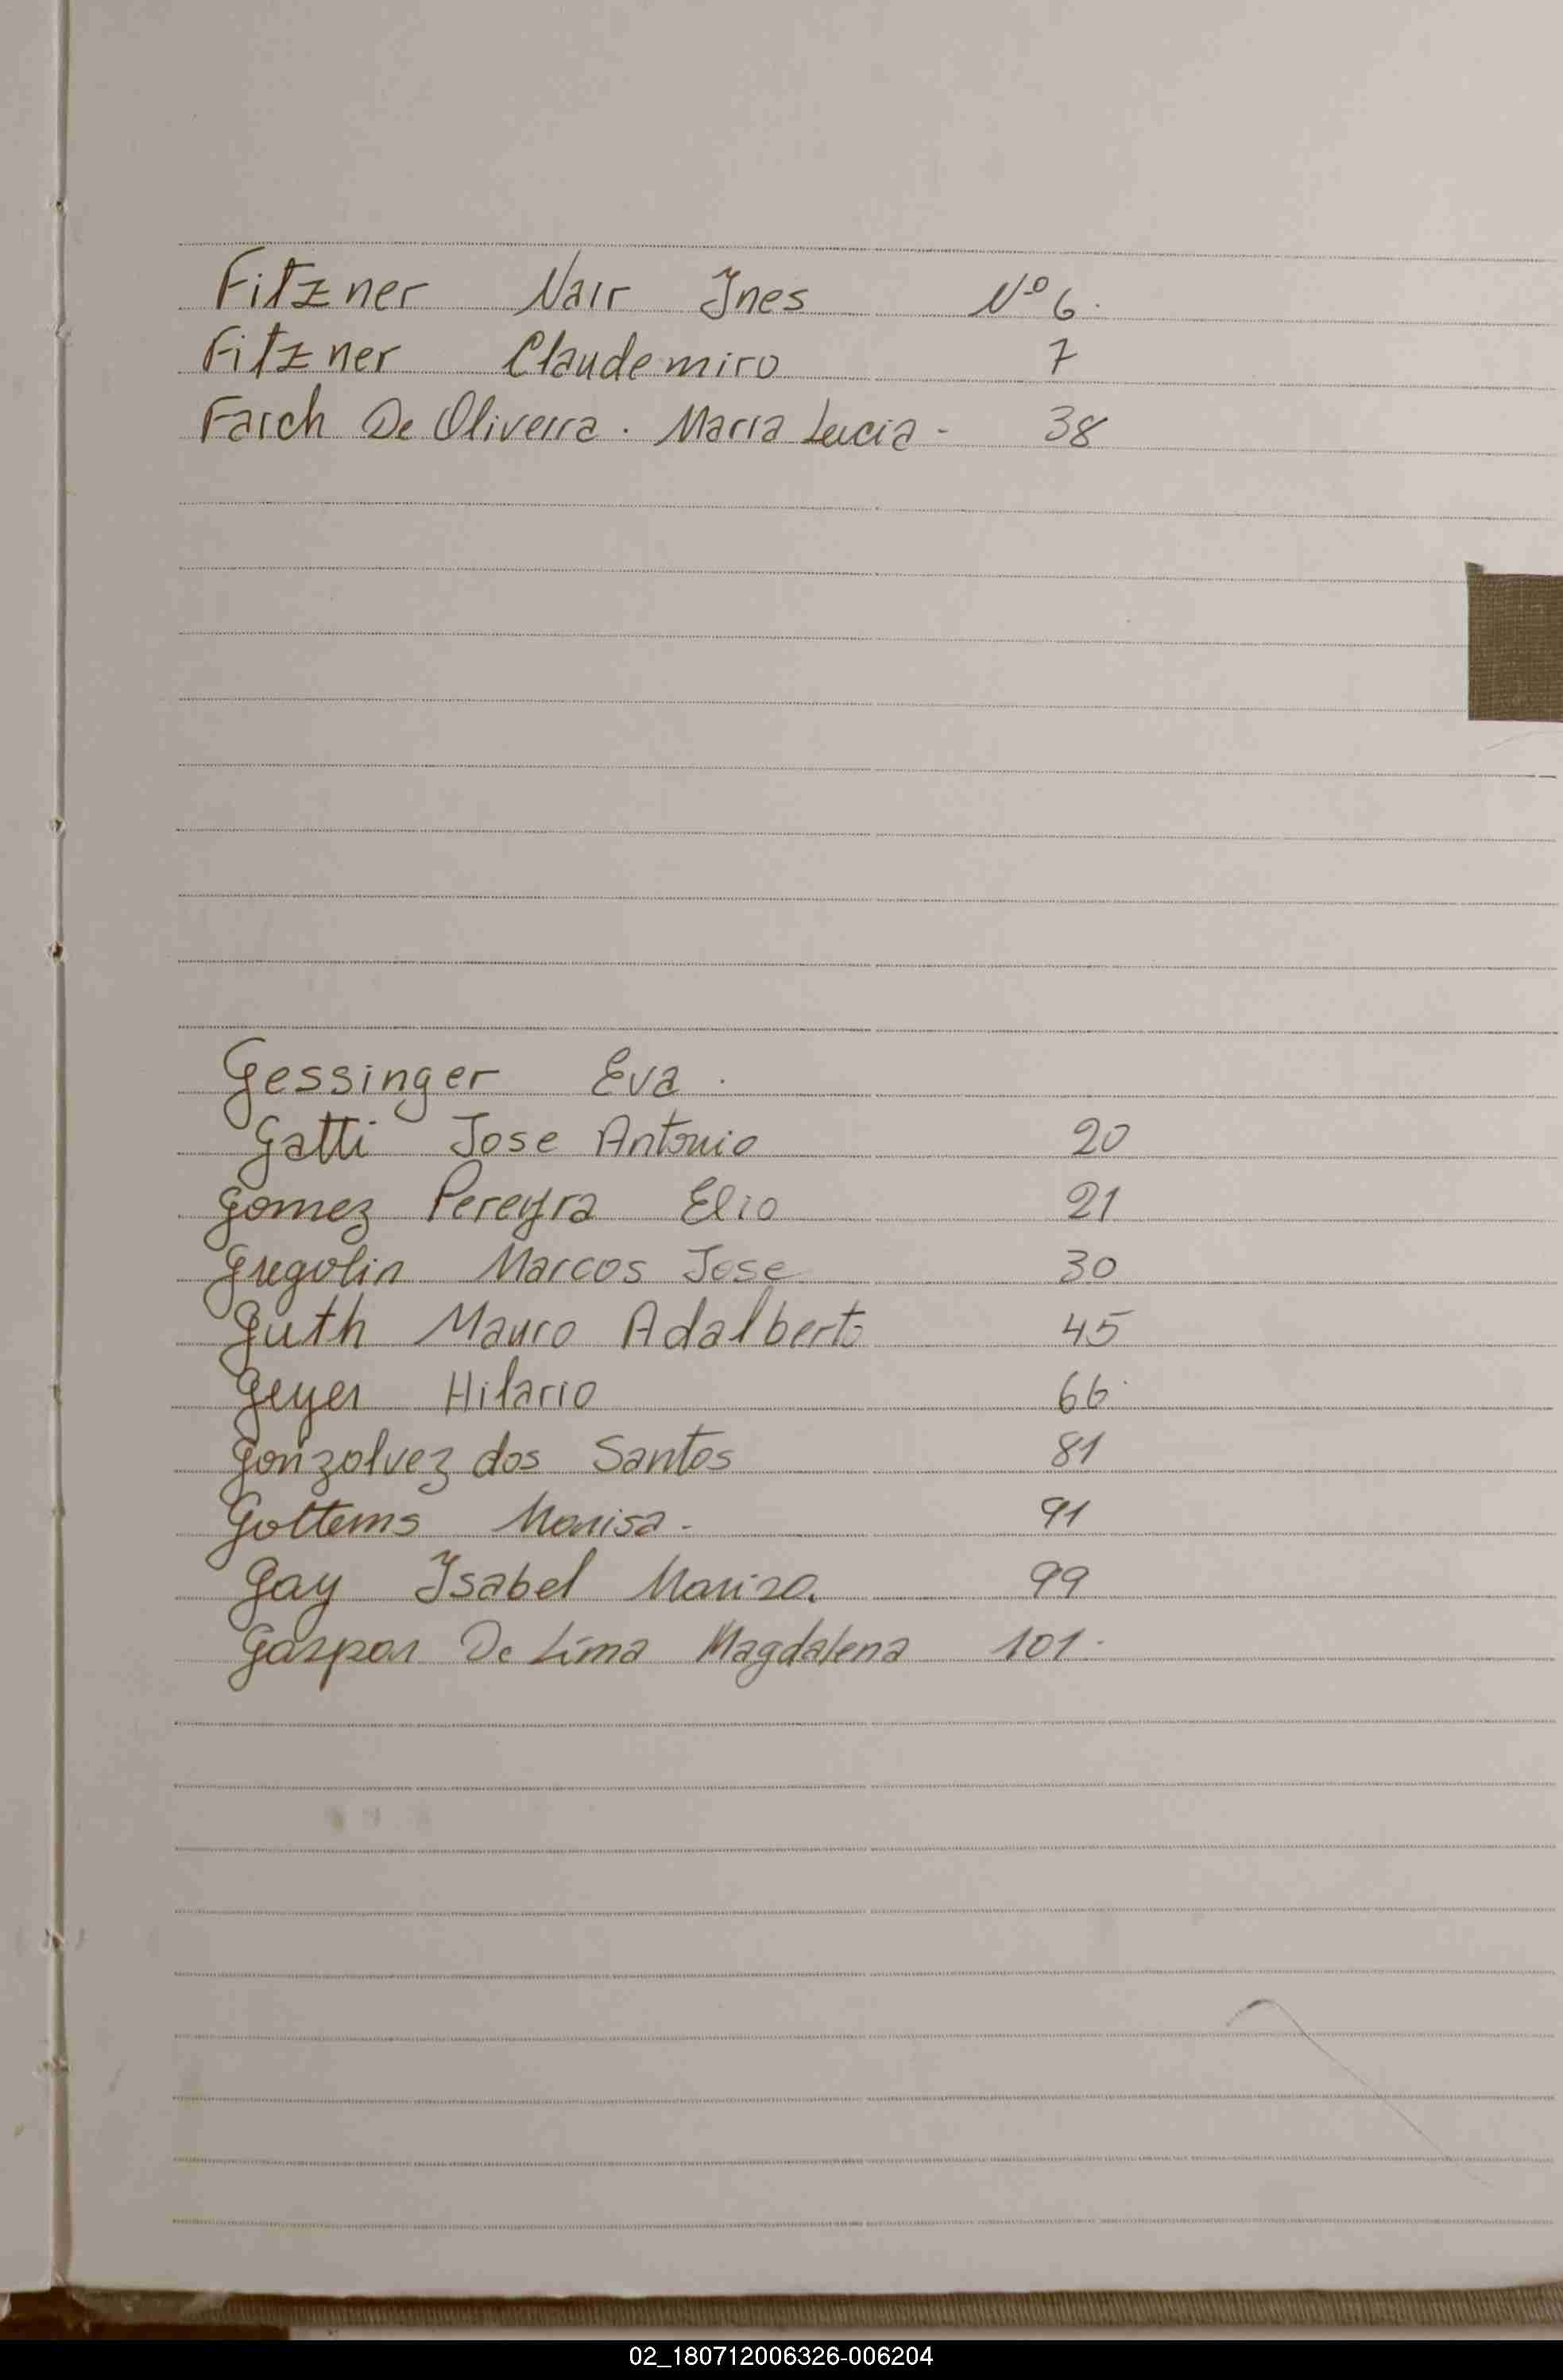 Fitzner Nair Ines Nº 6.
Fitzner Claudemiro 7
Farch De Oliveira. Maria Lucia - 38
Gessinger Eva.
Gatti Jose Antonio 20
Gomez Pereyra Elio 21
Gregolin Marcos Jose 30
Guth Mauro Adalberto 45
Geyer Hilario 66.
Gonzolvez dos Santos 81
Gottems Monisa - 91
Gay Isabel Mariza. 99
Gaspar De Lima Magdalena 101.
02_180712006326-006204